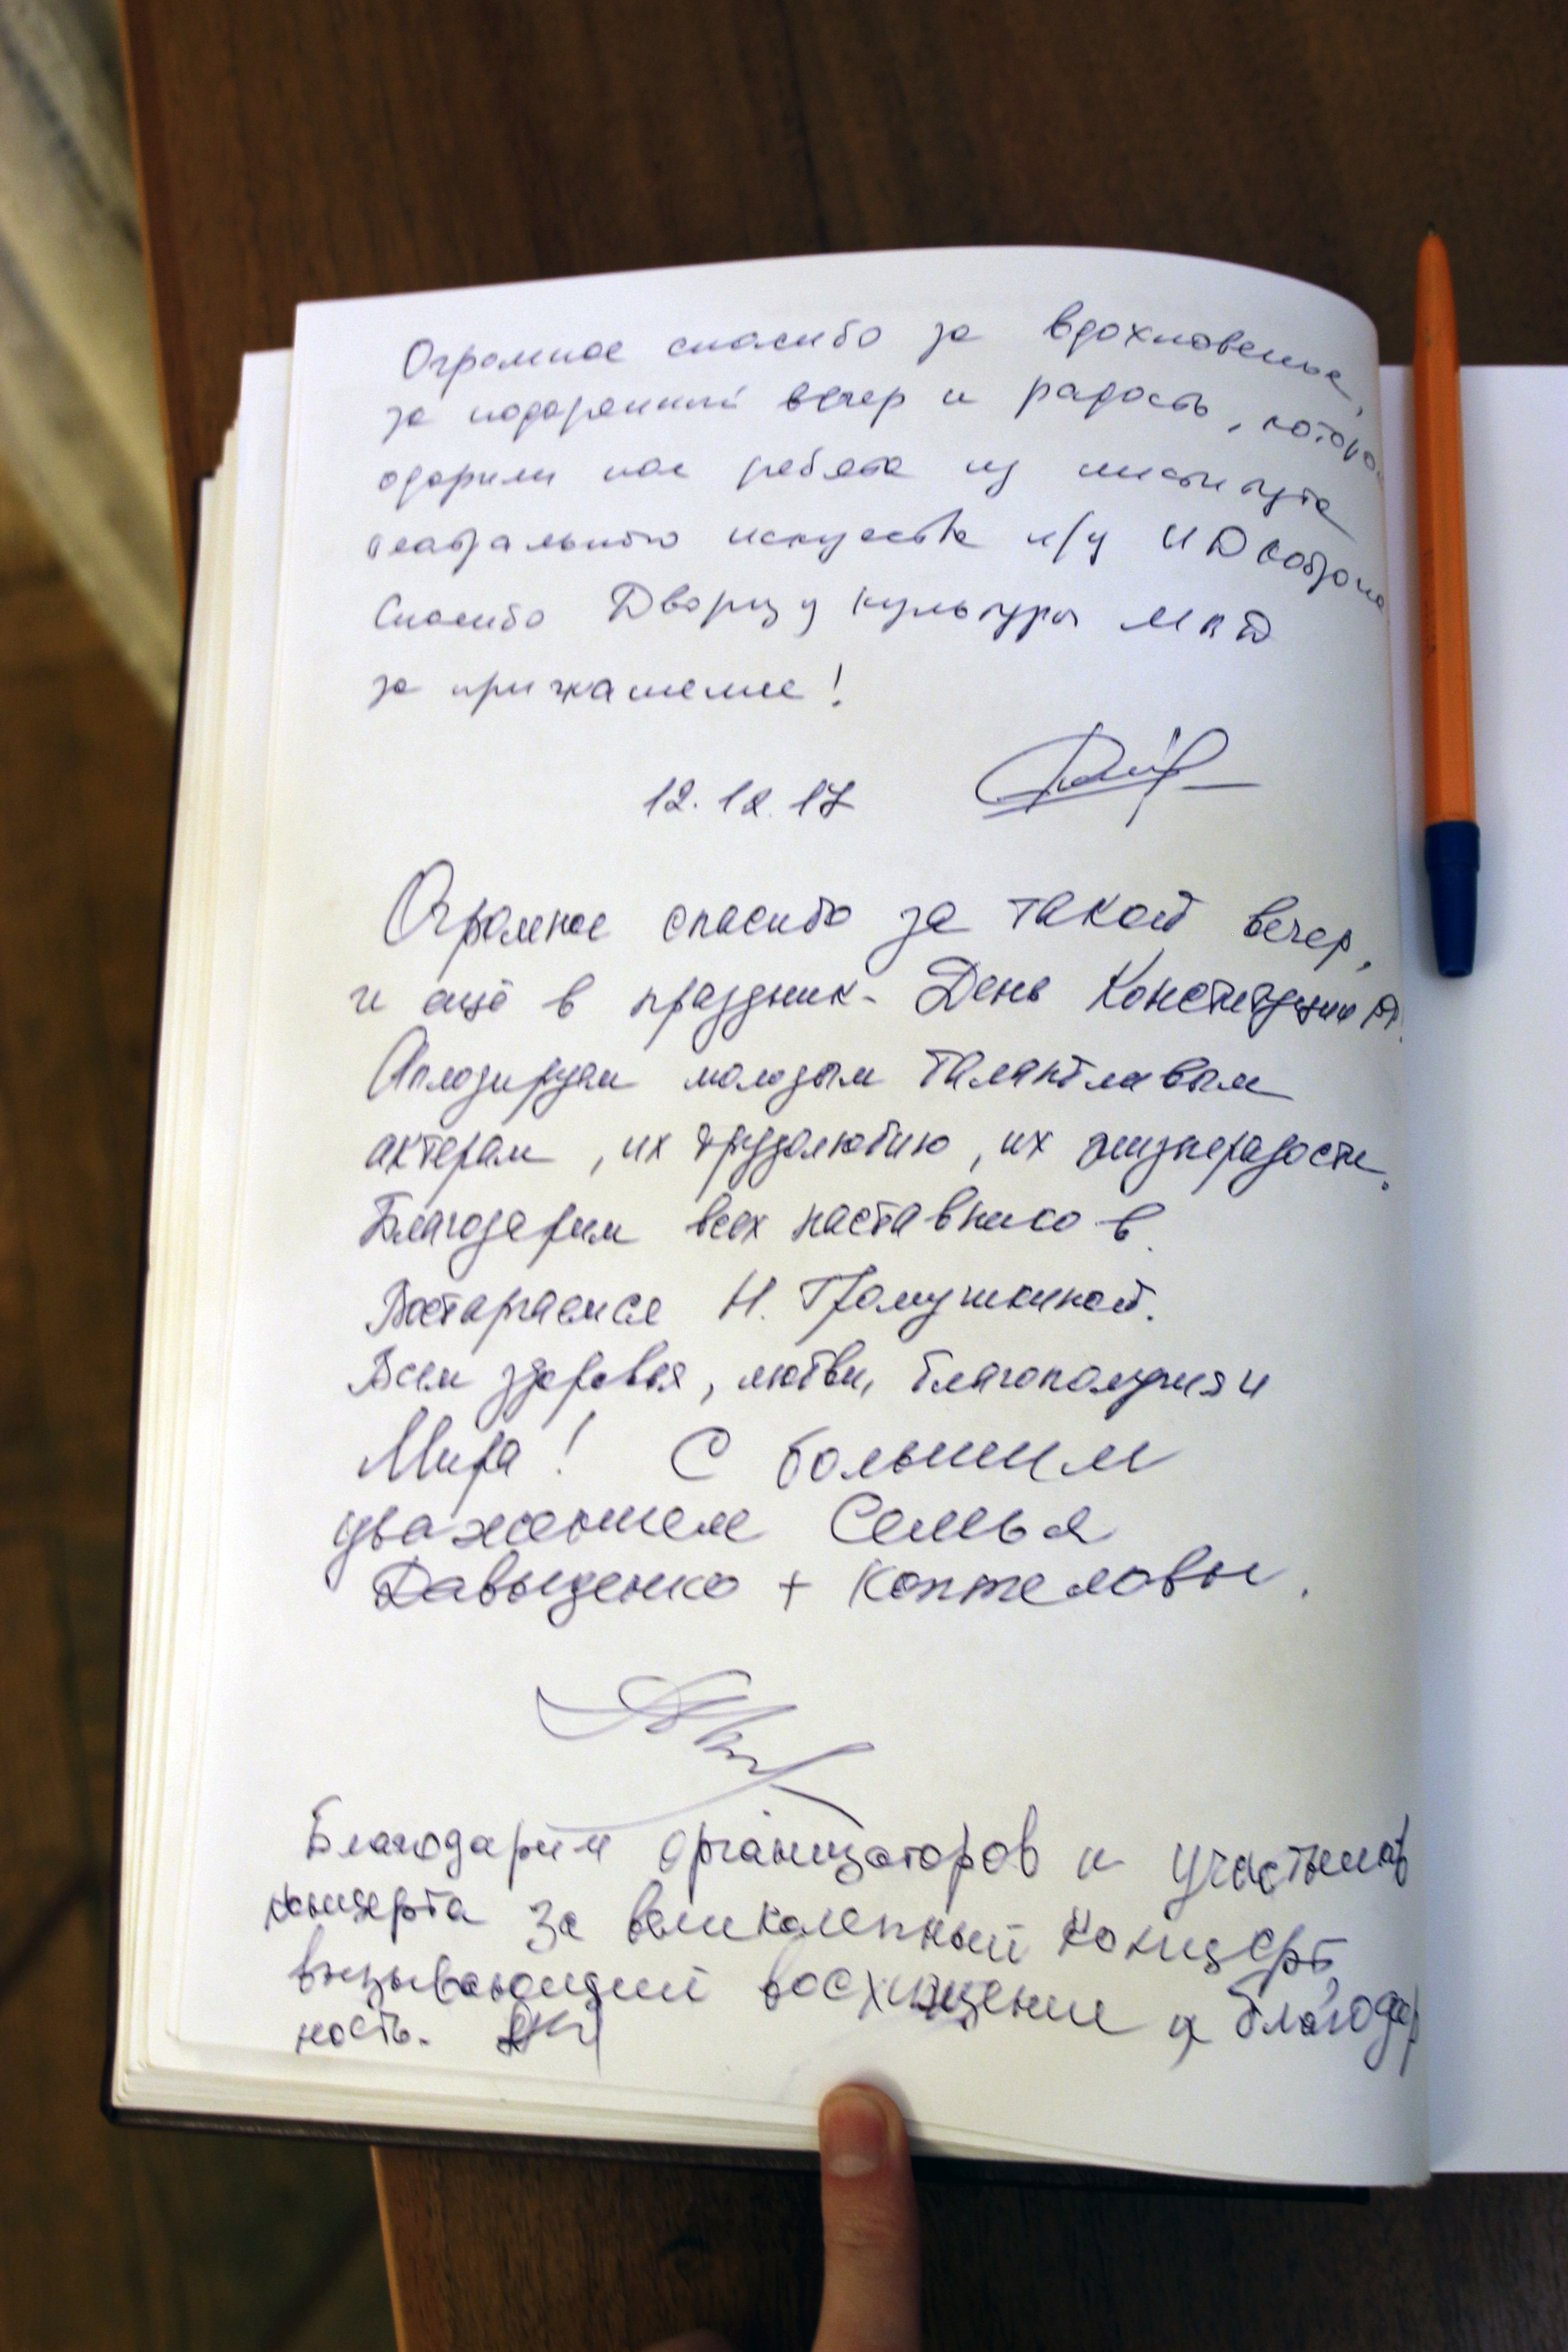 Огромное спасибо за вдохновенье,
за подаренный вечер и радость, которой
одарили нас ребята из института
театрального искусства п/у И Д Кобзона
Спасибо Дворцу культуры МКД
за приглашение!
12.12.17
Огромное спасибо за такой вечер,
и ещё в праздник - День Конституции РФ.
Аплодируем молодым талантливым
актерам, их трудолюбию, их жизнерадости.
Благодарим всех наставников.
Восторгаемся Н. Громушкиной.
Всем здоровья, любви, благополучия и
Мира! С большим
уважением Семья
Давыденко + Коптеловы.
Благодарим организаторов и участников
концерта за великолепный концерт,
вызывающий восхищение и благодар
ность.